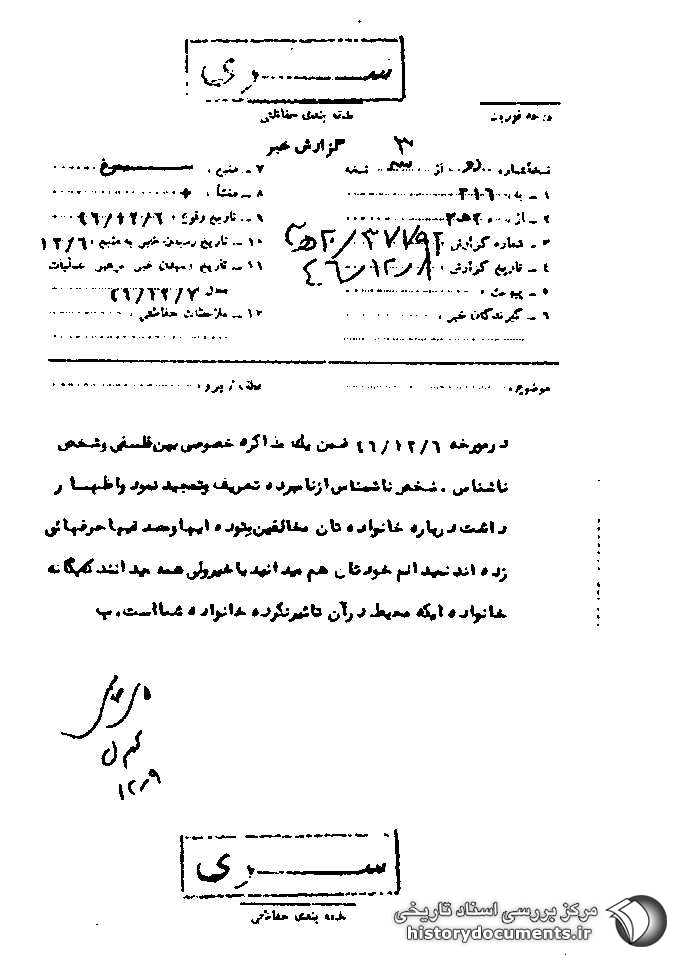 ســـری
طبقه بندی حفاظتی
درجه فوریت
گزارش خبر
نسخه شماره دو از ۳ نسخه
۱ - به ۳۱۶
۲ - از ۲۰ ﻫ ۲
۳ - شماره گزارش ۲۰/۳۷۷۹۲ ﻫ ۲
۴ - تاریخ گزارش ۴۶/۱۲/۸
۵ - پیوست
۶ - گیرندگان خبر
۷ - منبع
۸ - منشأ
۹ - تاریخ وقوع ۴۶/۱۲/۶
۱۰ - تاریخ رسیدن خبر به منبع ۱۲/۶
۱۱ - تاریخ رسیدن خبر برهبر عملیات
محل ۴۶/۱۲/۷
۱۲ - ملاحظات حفاظتی
موضوع
عطف / پیرو
درمورخه ۴۶/۱۲/۶ ضمن یک مذاکره خصوصی بین فلسفی و شخص
ناشناس . شخص ناشناس از نامبرده تعریف و تمجید نمود و اظهار
داشت درباره خانواده تان مخالفین بتوده ایها و مصدقیها حرفهائی
زده اند نمیدانم خودتان هم میدانید یا خیر ولی همه میدانند که یگانه
خانواده ایکه محیط در آن تاثیر نکرده خانواده شما است . ب
۱۲/۹
ســـری
طبقه بندی حفاظتی
مرکز بررسی اسناد تاریخی
historydocuments.ir